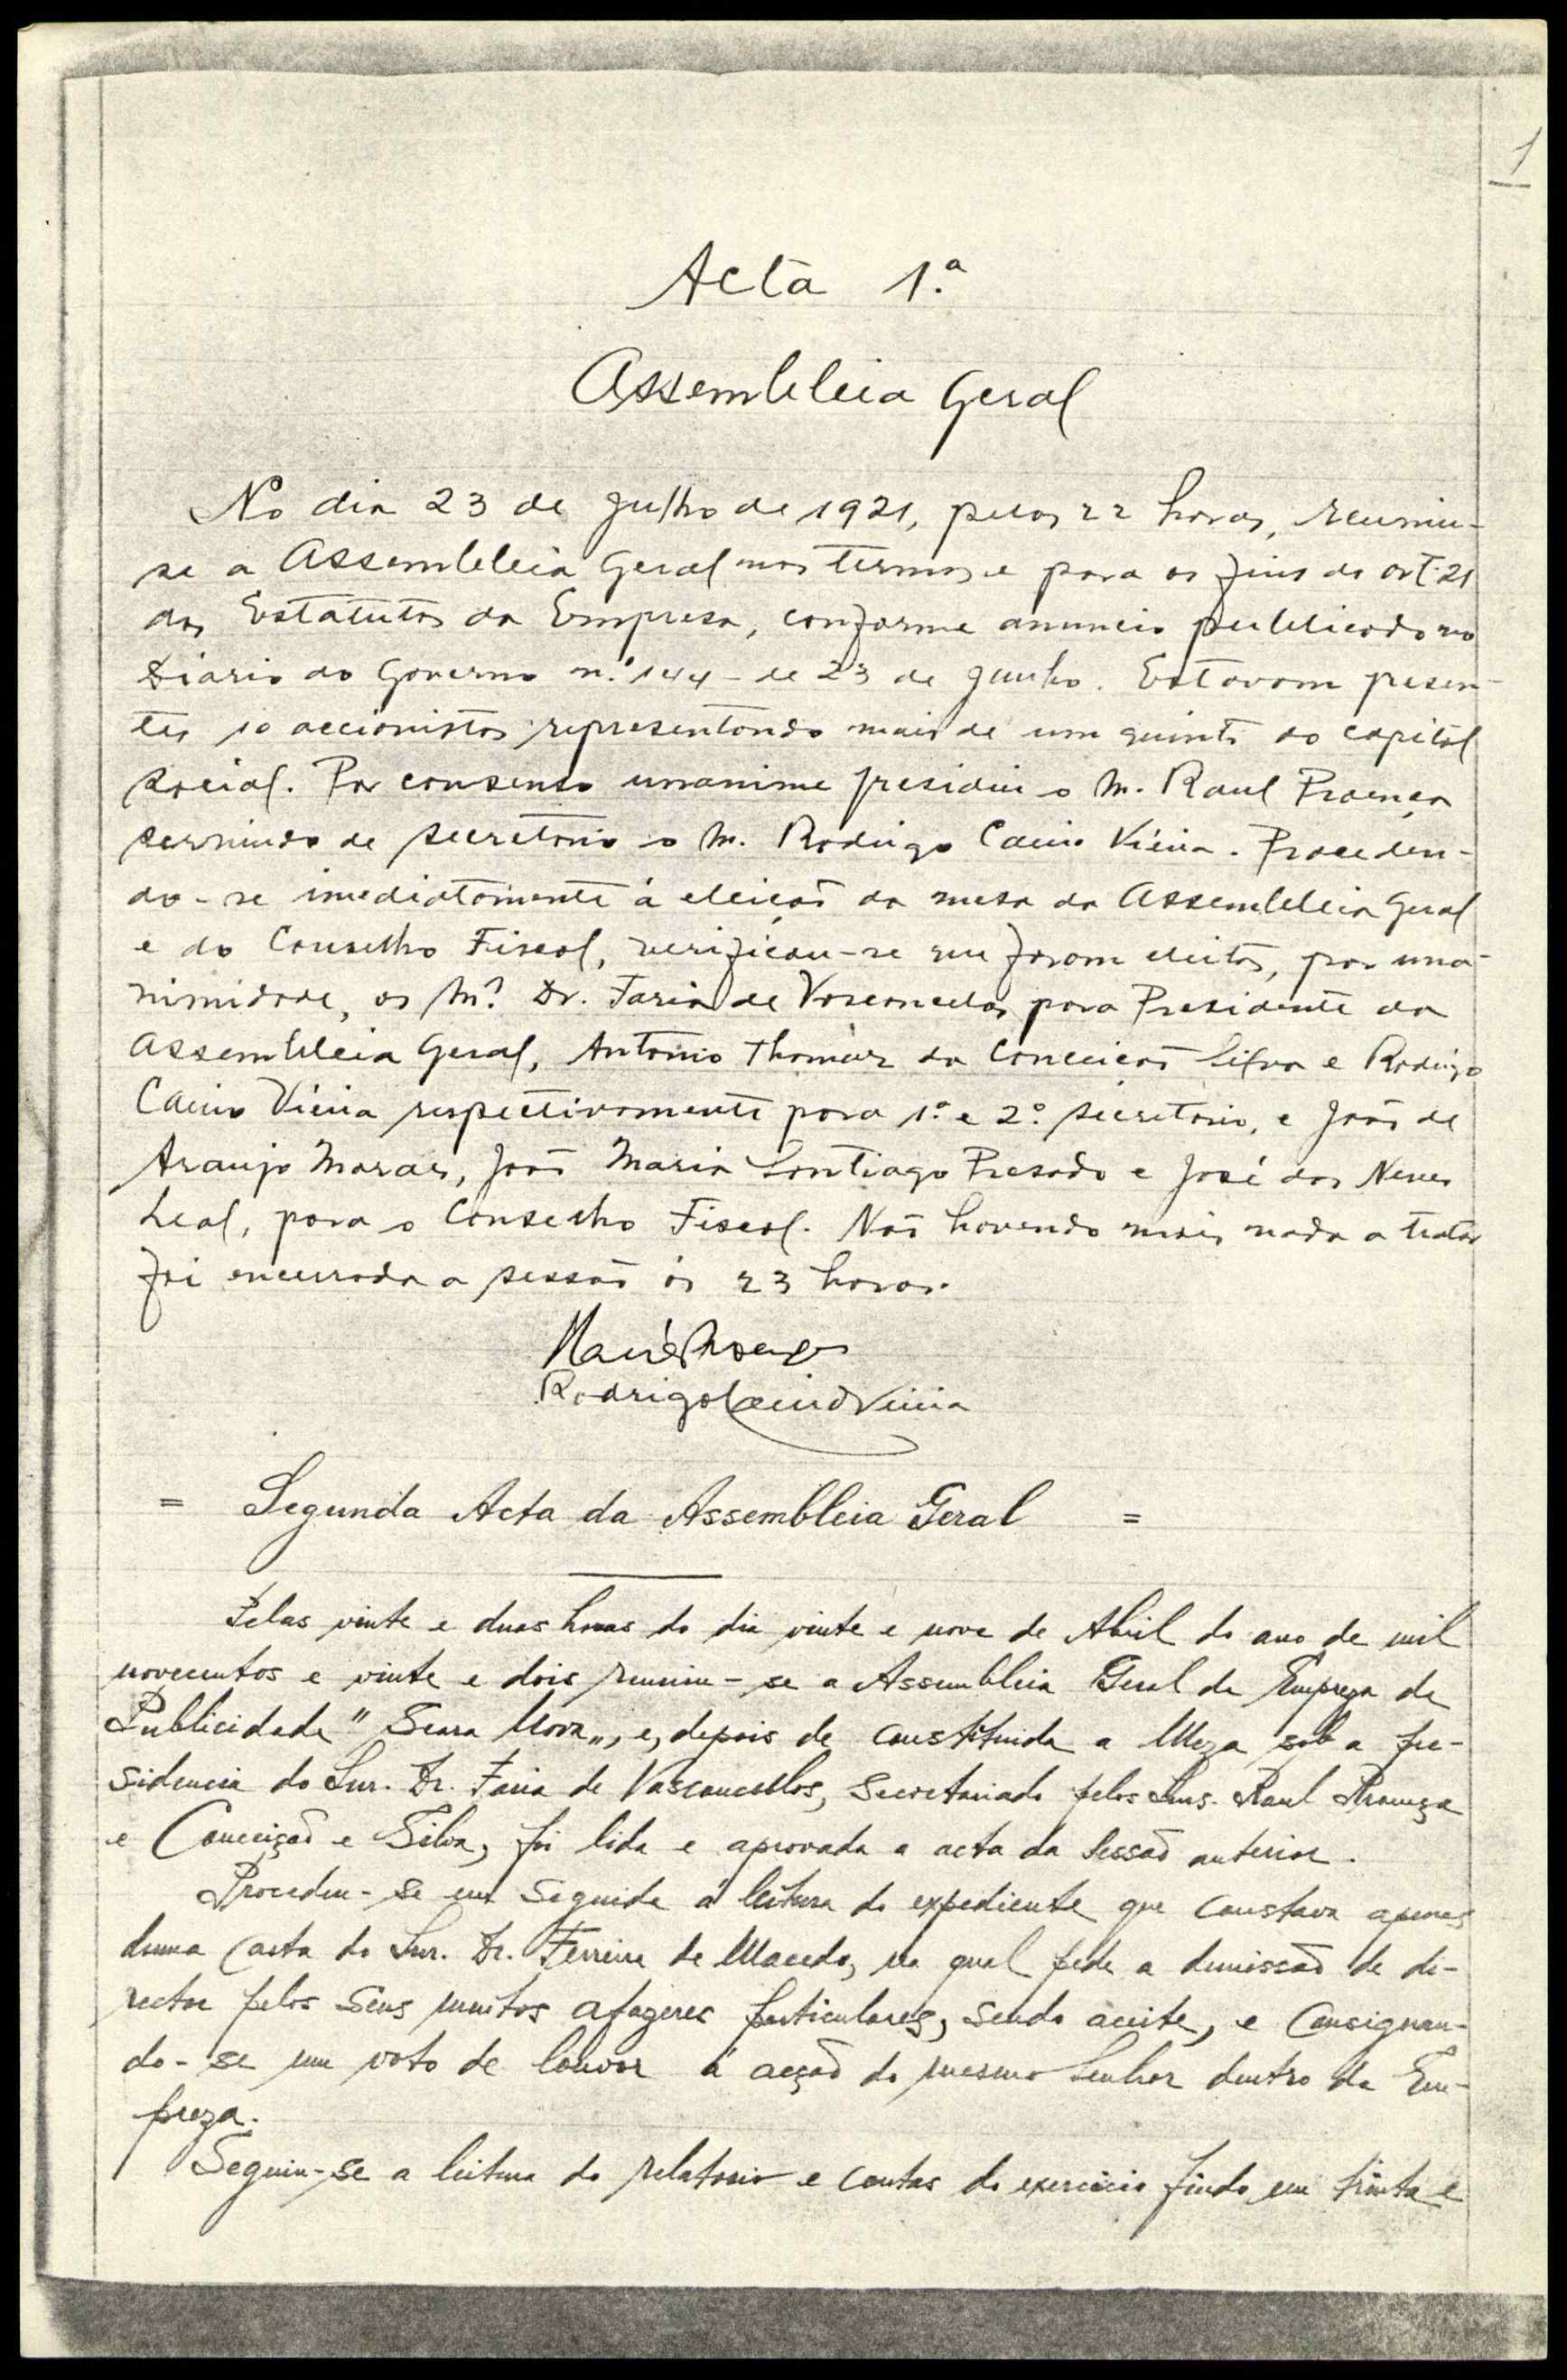 1
Acta 1.ª
Assembleia Geral
No dia 23 de Julho de 1921, pelas 22 horas, reuniu-
se a Assembleia Geral nos termos e para os fins do art. 21
dos Estatutos da Empresa, conforme anuncio publicado no
Diario do Governo n.º 144 - de 23 de Junho. Estavam presen-
tes 10 accionistas representando mais de um quinto do capital
social. Por consenso unanime presidiu o Sr. Raul Proença
servindo de secretario o Sr. Rodrigo Vieira. Proceden-
do-se imediatamente á eleição da mesa da Assembleia Geral
e do Conselho Fiscal, verificou-se que foram eleitos, por una-
nimidade, os Srs. Dr. Faria de Vasconcelos para Presidente da
Assembleia Geral, Antonio Thomaz da Conceição Silva e Rodrigo
Vieira respectivamente para 1.º e 2.º secretario, e João de
Araujo Moraes, João Maria Santiago Presado e José das Neves
Leal, para o Conselho Fiscal. Não havendo mais nada a tratar
foi encerrada a sessão ás 23 horas.
Raul Proença
Rodrigo Vieira
= Segunda Acta da Assembleia Geral =
Pelas vinte e duas horas do dia vinte e nove de Abril do ano de mil
novecentos e vinte e dois reuniu-se a Assembleia Geral da Empreza de
Publicidade "Seara Nova„, e, depois de constituida a Meza sob a pre-
sidencia do Snr. Dr. Faria de Vasconcellos, secretariado pelos Snrs. Raul Proença
e Conceição e Silva, foi lida e aprovada a acta da sessão anterior.
Procedeu-se em seguida á leitura do expediente que constava apenas
duma carta do Snr. Dr. Ferreira de Macedo, na qual pede a demissão de di-
rector pelos seus muitos afazeres particulares, sendo aceite, e consignan-
do-se um voto de louvor á acção do mesmo Senhor dentro da Em-
preza.
Seguiu-se a leitura do relatorio e contas do exercicio findo em trinta e